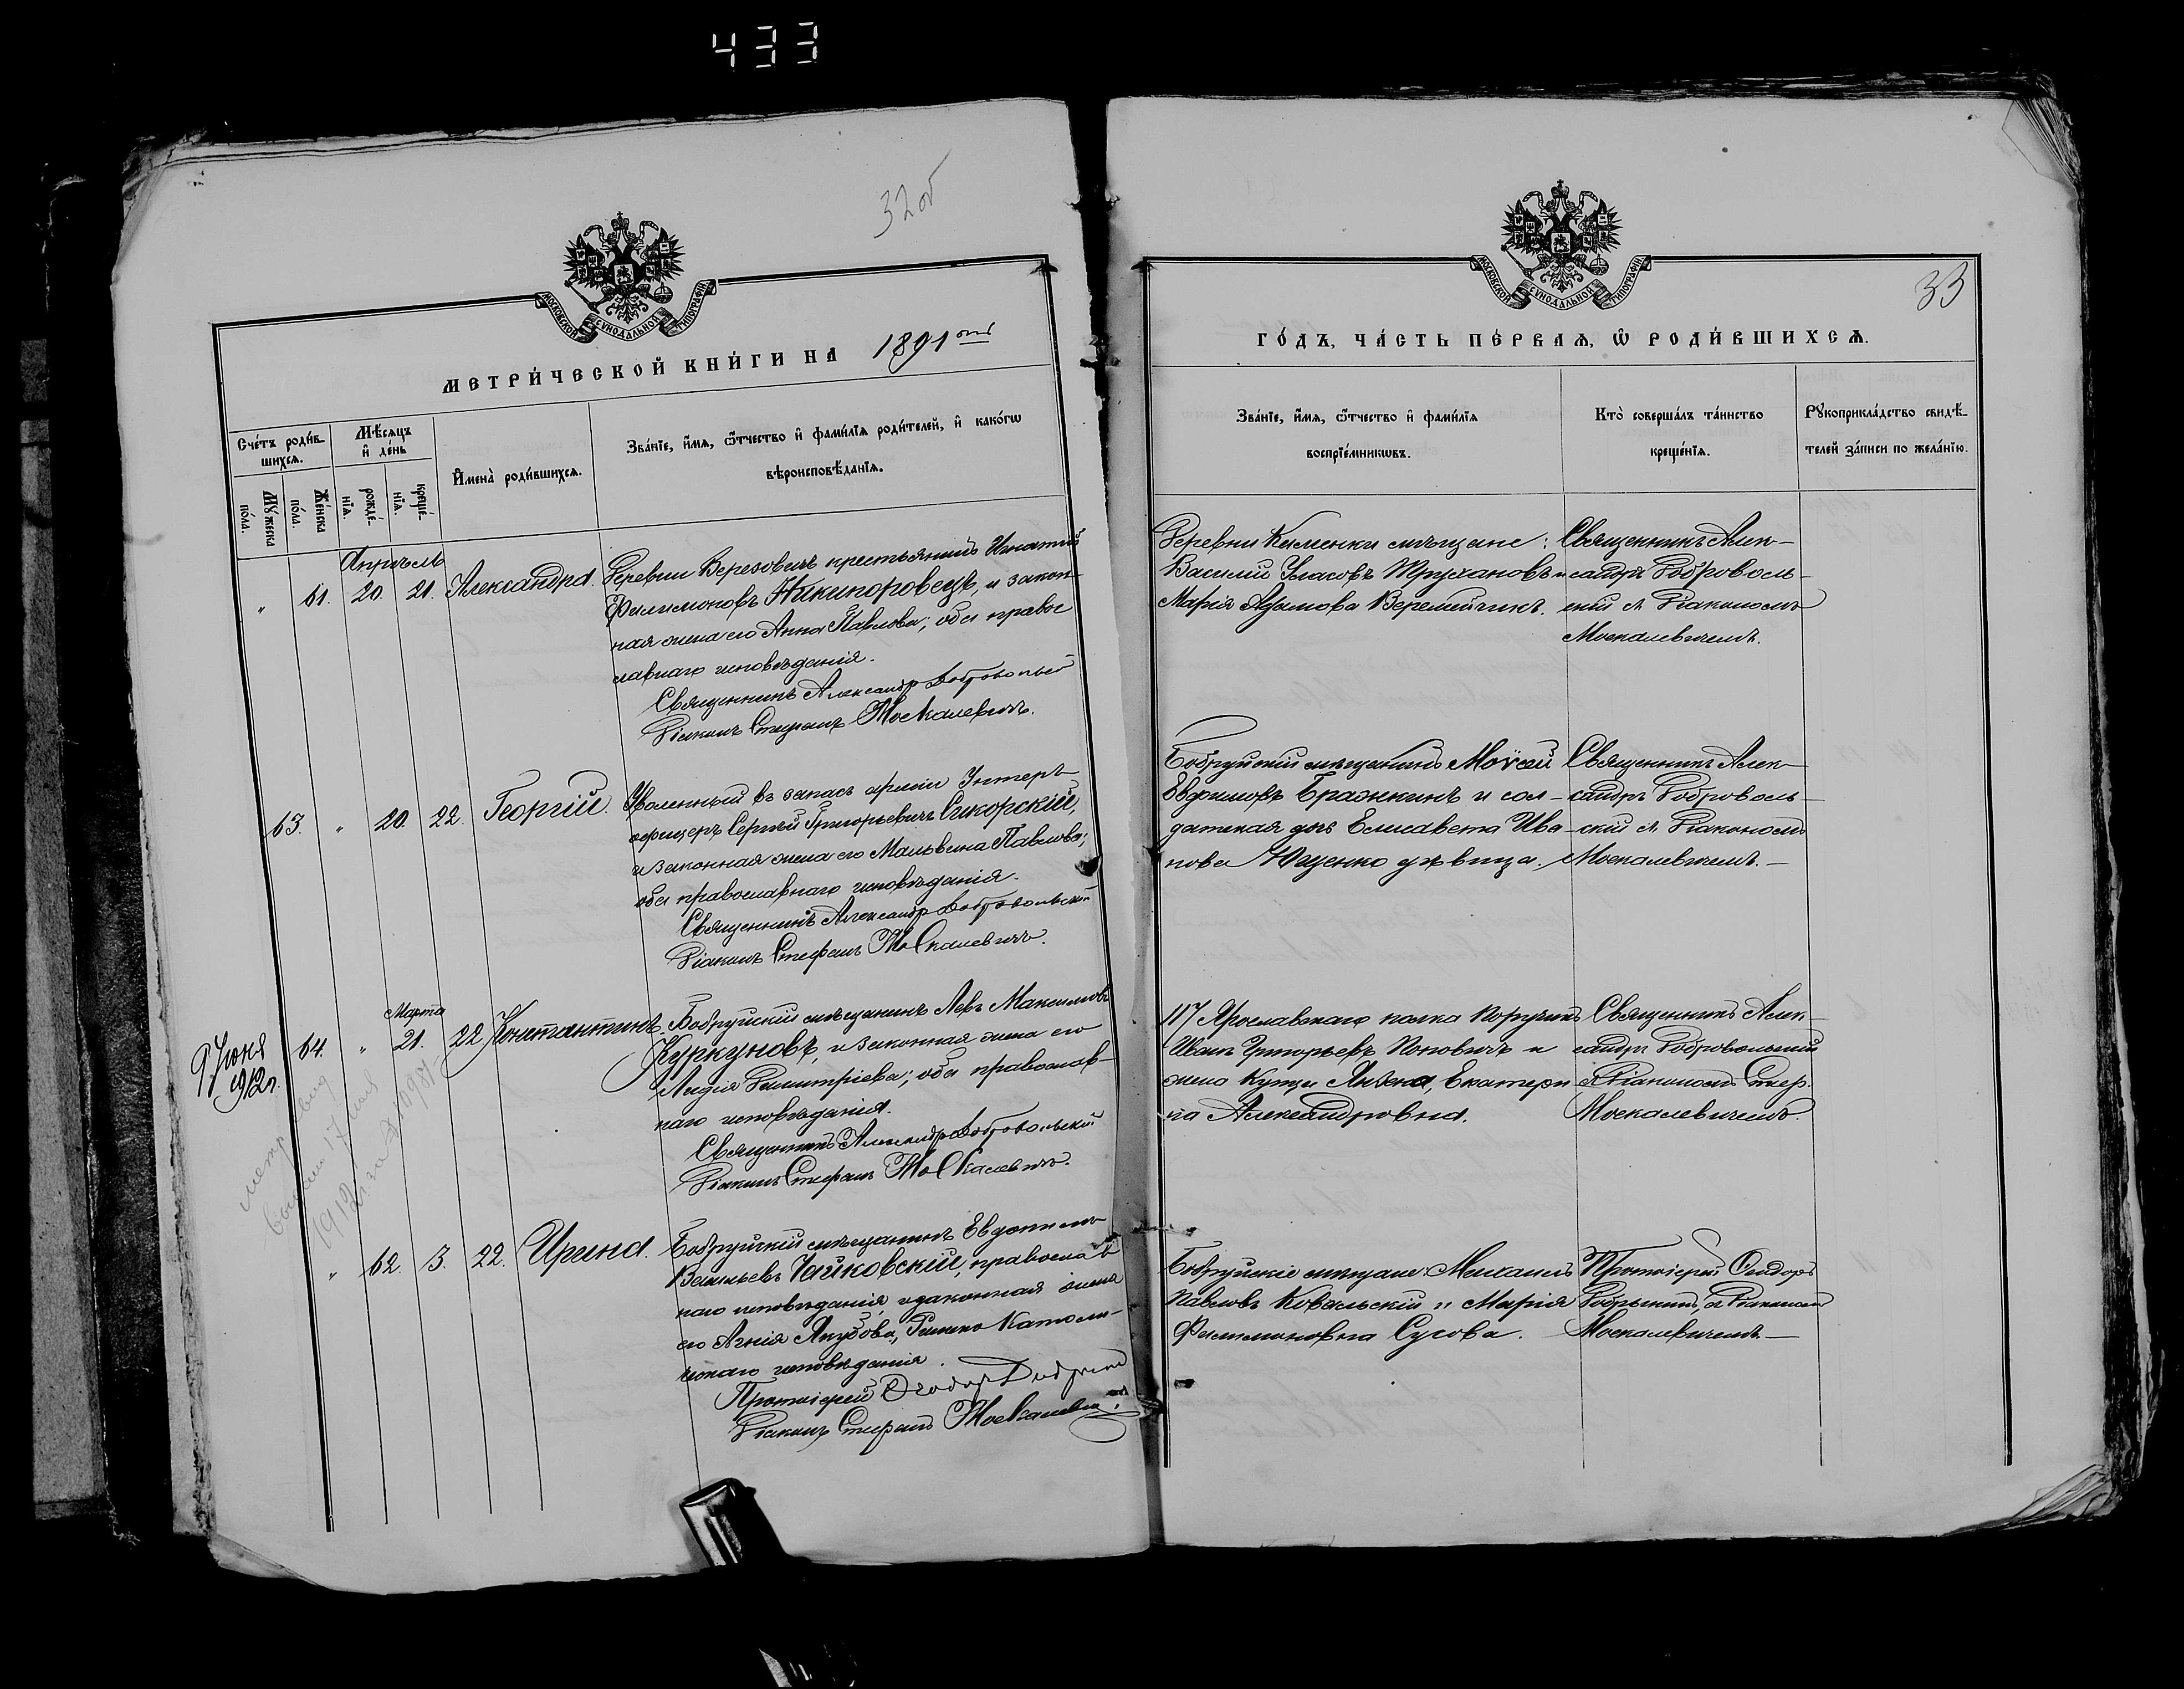 433
32 об
МОСКОВСКОЙ СѴНОДАЛЬНОЙ ТИПОГРАФІИ
МЕТРИ́ЧЕСКОЙ КНИ́ГИ НА 1891 ый
Сче́тъ роди́вшихсѧ.
Мꙋ́жеска по́ла.
Же́нска по́ла.
Мѣ́сѧцъ и҆ де́нь
рожде́нїѧ.
креще́нїѧ.
И҆мена̀ роди́вшихсѧ.
Зва́нїе, и҆́мѧ, ѻ҆́тчество и҆ фами́лїѧ роди́телей, и҆ како́гѡ
вѣроисповѣ́данїѧ.
Апрѣль
" 61. 20. 21. Александра.
Деревни Березовичъ крестьянинъ Игнатій
Филимоновъ Никипоровецъ, и закон-
ная жена его Анна Павлова; оба правос
лавнаго исповѣданія.
Священникъ Александръ Добровольскій
Діаконъ Стефанъ Москалевичъ.
63. " 20. 22. Георгій.
Уволенный въ запасъ арміи Унтеръ-
офицеръ Сергѣй Григорьевичъ Сикорскій,
и законная жена его Мальвина Павлова;
оба православнаго исповѣданія.
Священникъ Александръ Добровольскій
Діаконъ Стефанъ Москалевичъ.
9 Іюня
912 г.
Марта
64. " 21. 22 Константинъ.
Бобруйскій мѣщанинъ Левъ Максимовъ
Куркуновъ, и законная жена его
Лидія Димитріева; оба православ-
наго исповѣданія.
Священникъ Александръ Добровольскій
Діаконъ Стефанъ Москалевичъ.
метр
17 мая
1912 г. за №
" 62. 3. 22. Ирина.
Бобруйскій мѣщанинъ Евдокимъ
Васильевъ Чайковскій, православ
наго исповѣданія, и законная жена
его Агнія Якубова, Римско Католи-
ческаго исповѣданія.
Протоіерей Ѳеодоръ
Діаконъ Стефанъ Москалевичъ.
33
МОСКОВСКОЙ СѴНОДАЛЬНОЙ ТИПОГРАФІИ
ГО́ДЪ, ЧА́СТЬ ПЕ́РВАѦ, Ѡ҆ РОДИ́ВШИХСѦ.
Зва́нїе, и҆́мѧ, ѻ҆́тчество и҆ фами́лїѧ
воспрїе́мникѡвъ.
Кто̀ соверша́лъ та́инство
креще́нїѧ.
Рꙋкоприкла́дство свидѣ́-
телей за́писи по жела́нїю.
Деревни Каменки мѣщане:
Василій Уласовъ Трухановъ и
Марія Адамова Веремейчикъ.
Священникъ Алек-
сандръ Доброволь-
скій съ Діакономъ
Москалевичемъ.
Бобруйскій мѣщанинъ Моѵсей
Евфимовъ Бражкинъ и сол-
датская дочь Елисавета Ива-
нова Юценко дѣвица.
Священникъ Алек-
сандръ Доброволь-
скій съ Діакономъ
Москалевичемъ. —
117 Ярославскаго полка Поручикъ
Иванъ Григорьевъ Поповичъ и
жена Купца Екатери
на Александровна.
Священникъ Алек-
сандръ Добровольскій
съ Діакономъ Стеф.
Москалевичемъ.
Бобруйскіе мѣщане: Михаилъ
Павловъ Ковальскій и Марія
Филимоновна Сусова.
Протоіерей Ѳеодоръ
съ Діакономъ
Москалевичемъ. —